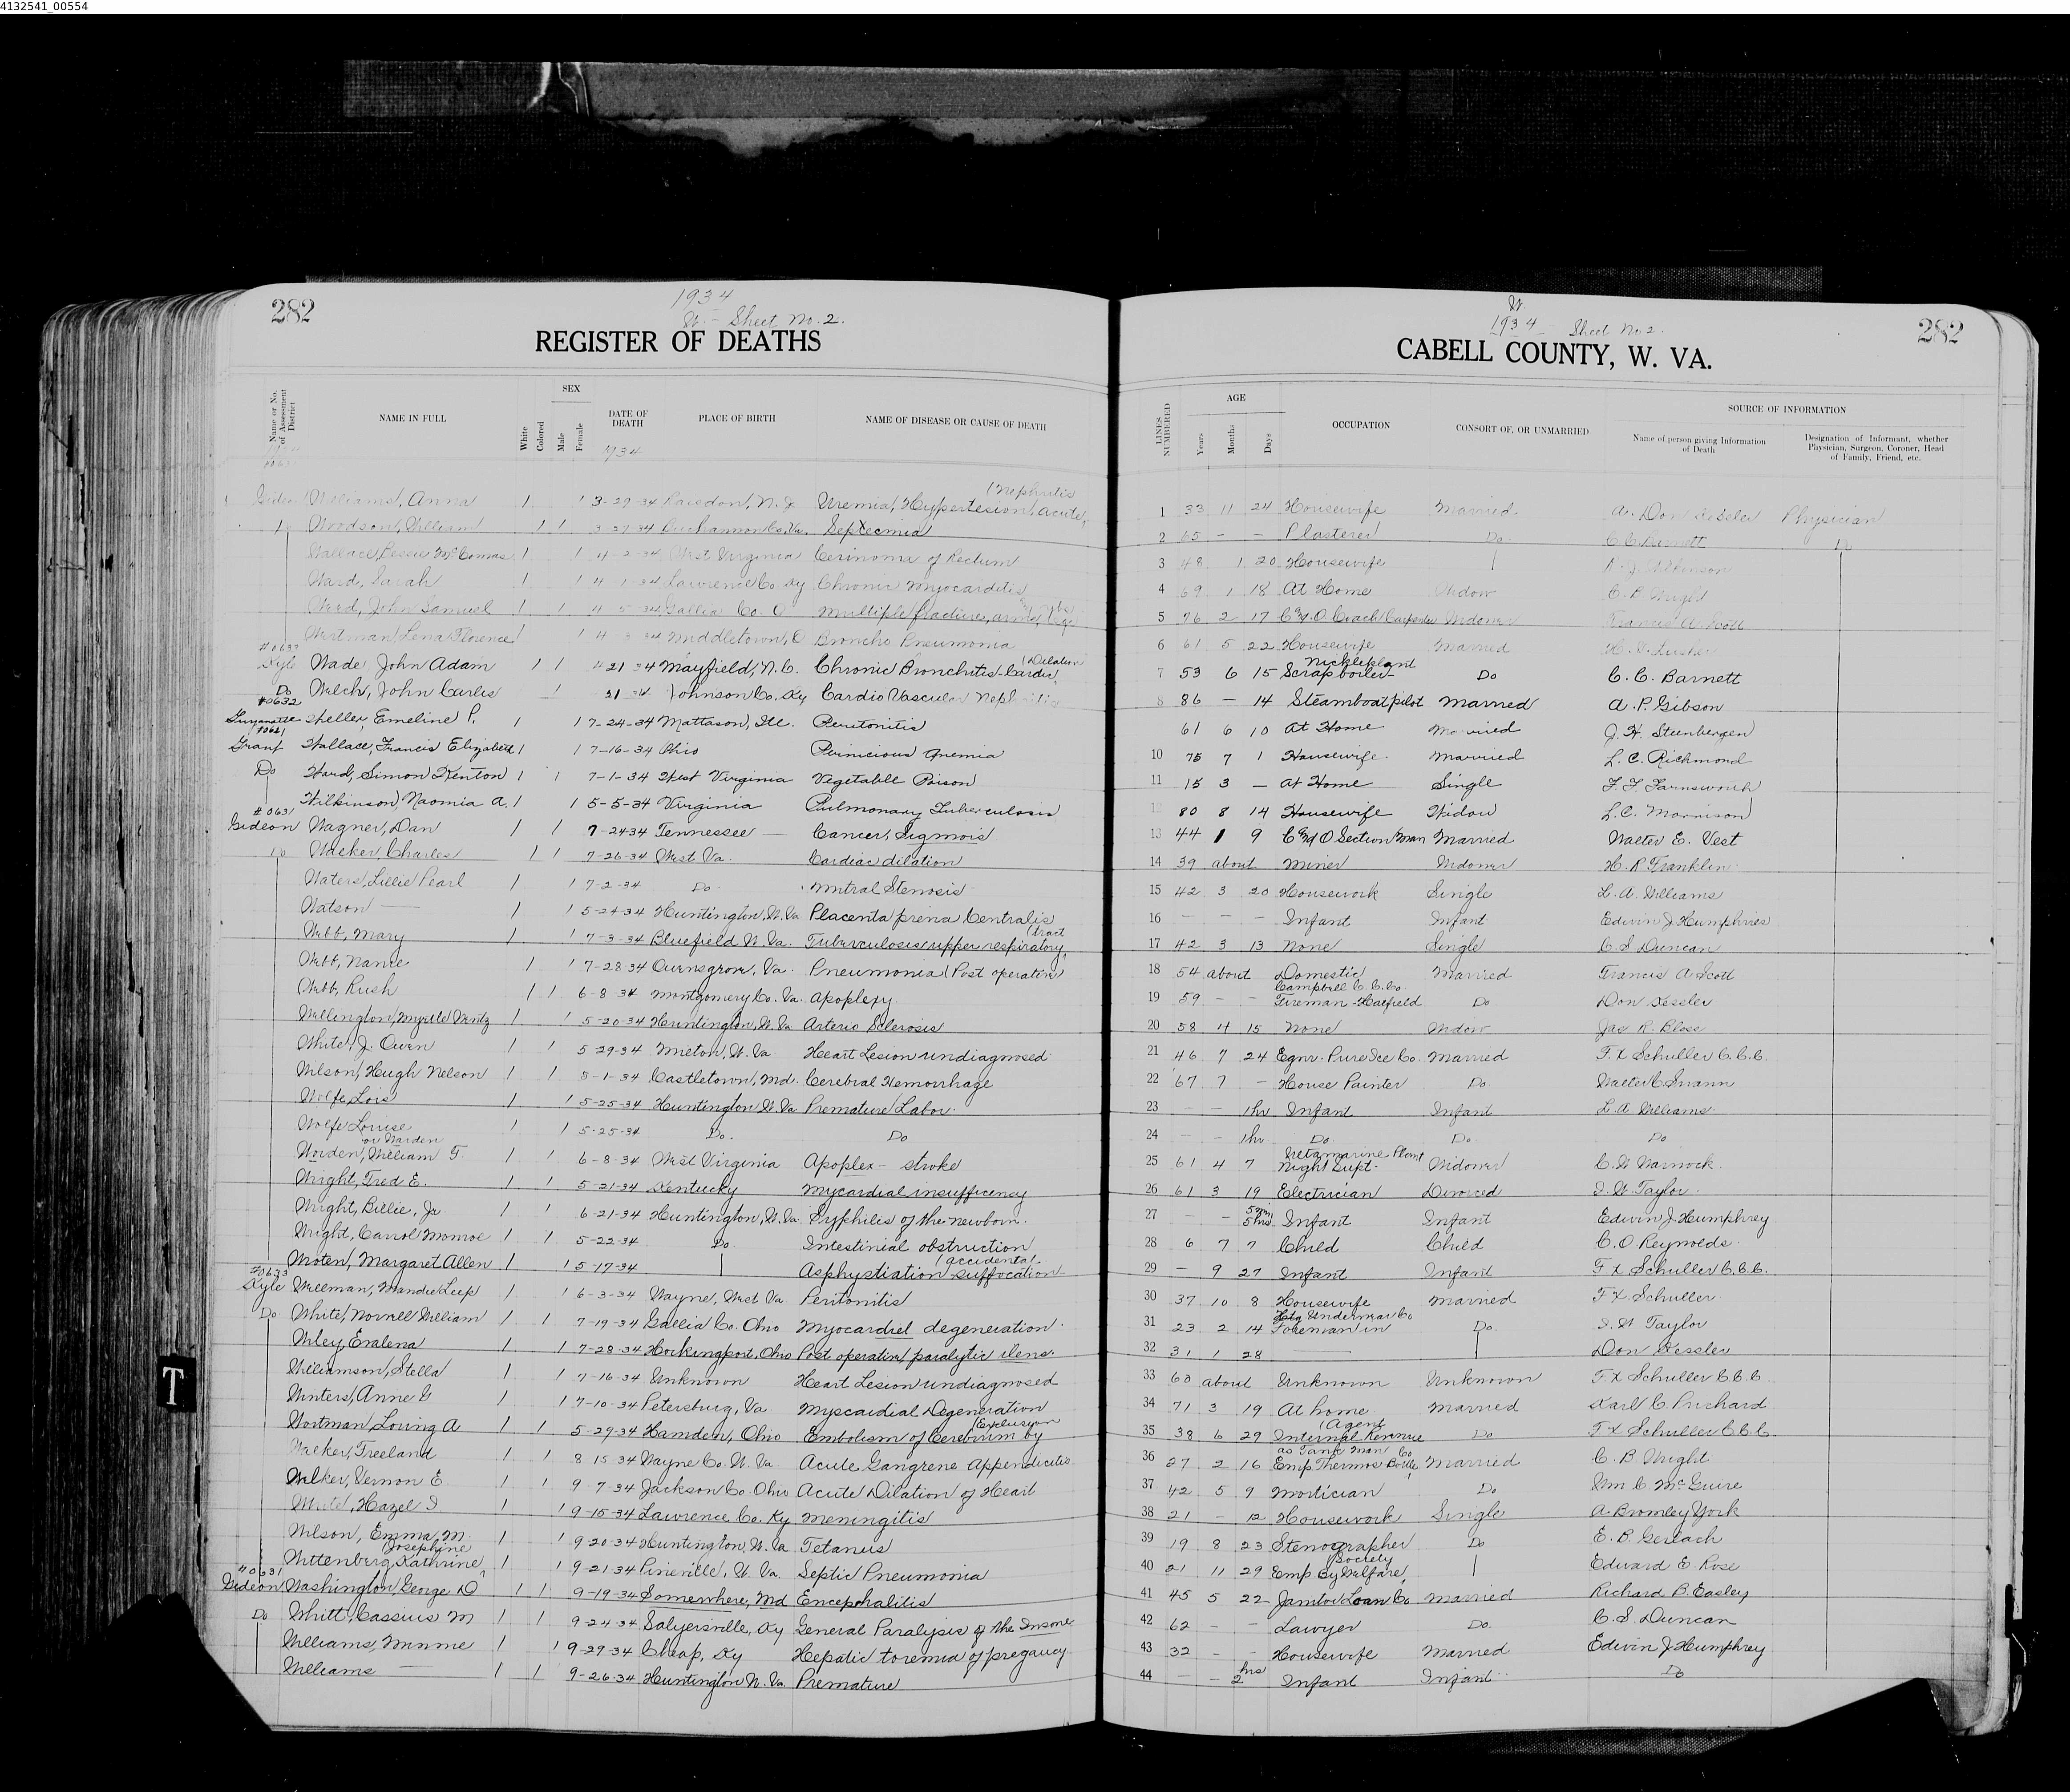 4132541_00554
282
1934
W - Sheet No. 2.
REGISTER OF DEATHS
Name or No. of Assessment District
NAME IN FULL
White
Colored
SEX
Male
Female
DATE OF DEATH
PLACE OF BIRTH
NAME OF DISEASE OR CAUSE OF DEATH
1934
Gideon Williams, Anna 1 1 3-29-34 N. J Uremia, Hypertesion, acute (Nephritis
Do Woodson, William 1 1 3 34 Co. Va. Septecmia
Wallace, Bessie McComas 1 1 4-2-34 West Virginia Cerinoma of Rectum
Ward, Sarah 1 1 4 1-34 Lawrence Co Ky Chronic Myocarditis
John Samuel 1 1 4 5-34 Gallia Co. O Multiple fractures, arms
Wertman, Lena Florence 1 1 4 3 34 Middletown, O Broncho Pneumonia
#0633
Kyle Wade, John Adam 1 1 4 21 34 Mayfield, N.C. Chronic Bronchitis-Cardic (Dilation
Do Welch, John Carles 1 31 34 Johnson Co. Ky Cardio Vascular Nephritis
#0632
Guyandotte Wheller, Emeline P. 1 1 7-24-34 Mattason, Ill. Peritonitis
#0621
Grant Wallace, Francis Elizabeth 1 1 7-16-34 Ohio Pernicious Anemia
Do Ward, Simon Kenton 1 1 7-1-34 West Virginia Vegetable Poison
Wilkinson, Naomia A. 1 1 5-5-34 Virginia Pulmonary Tuberculosis
#0631
Gideon Wagner, Dan 1 1 7-24-34 Tennessee — Cancer, Sigmois
Do Walker, Charles 1 1 7-26-34 West Va. Cardiac dilation
Waters, Lillie Pearl 1 1 7-2-34 Do. Mntral Stenosis
Watson — 1 1 5-24-34 Huntington, W. Va Placenta previa Centralis
Webb, Mary 1 1 7-3-34 Bluefield W. Va. Tuberculosis upper respiratory (tract
Webb, Nanie 1 1 7-28-34 Owensgrove, Va. Pneumonia (Post operative)
Webb, Rush 1 1 6-8-34 Montgomery Co. Va. Apoplexy.
Wellington, Myrtle Wentz 1 1 5-20-34 Huntington, W. Va Arterio Sclerosis
White, J. Owen 1 1 5-29-34 Milton, W. Va Heart Lesion undiagnosed
Wilson, Hugh Nelson 1 1 5-1-34 Castletown, Md. Cerebral Hemorrhage
Wolfe, Lois 1 1 5-25-34 Huntington W. Va Premature Labor.
Wolfe Louise 1 1 5-25-34 Do. Do
or Warden
Worden, William T. 1 1 6-8-34 West Virginia Apoplex - stroke
Wright, Fred E. 1 1 5-21-34 Kentucky Mycardial insufficency
Wright, Billie, Jr 1 1 6-21-34 Huntington, W. Va. Syphiles of the newborn.
Wright, Carrol Monroe 1 1 5-22-34 Do. Intestinial obstruction
Woten, Margaret Allen 1 1 5-17-34 Asphystiation suffocation (accidental.
#0633
Kyle Wellman, Mandie Leep 1 1 6-3-34 Wayne, West Va Peritonitis
Do White, Norvell William 1 1 7-19-34 Gallia Co. Ohio Myocardiel degeneration.
Wiley, Evalena 1 1 7-28-34 Hockingport, Ohio Post operative paralytic ilens.
Williamson, Stella 1 1 7-16-34 Unknown Heart Lesion undiagnosed
Winters, Anne G 1 1 7-10-34 Petersburg, Va. Myscardial Degeneration
Wortman, Loring A 1 1 5-29-34 Hamden, Ohio Embolism of Cerebrum by (Exclusion
Walker, Freeland 1 1 8 15 34 Wayne Co. W. Va Acute Gangrene Appendicitis
Walker, Vernon E. 1 1 9-7-34 Jackson Co. Ohio Acute Dilation of Heart
Hazel I 1 1 9-15-34 Lawrence Co. Ky Meningitis
Wilson, Emma, M. 1 1 9 20 34 Huntington, W. Va Tetanus
Josephine
Wittenberg, Kathrine 1 1 9-21-34 Pineville, W. Va. Septic Pneumonia
#0631
Gideon Washington, George D 1 1 9-19-34 Somewhere, Md Encephalitis
Do Whitt, Cassius M 1 1 9-24-34 Salyersville, Ky General Paralysis of the Insane
Williams, Minnie 1 1 9-27-34 Cheap, Ky Hepatic toremia of pregancy.
Williams — 1 1 9-26-34 Huntington W. Va. Premature
W
1934 Sheet No 2.
282
CABELL COUNTY, W. VA.
LINES NUMBERED
AGE
Years
Months
Days
OCCUPATION
CONSORT OF, OR UNMARRIED
SOURCE OF INFORMATION
Name of person giving Information of Death
Designation of Informant, whether Physician, Surgeon, Coroner, Head of Family, Friend, etc.
1 33 11 24 Housewife Married Don Kessler Physician
2 65 - - Plasterer Do. C. C. Barnett Do
3 48 1 20 Housewife Wilkinson
4 69 1 18 At Home Widow C. B Wright
5 76 2 17 C & O Coach Carpenter Widower Francis A. Scott
6 61 5 22 Housewife Married
7 53 6 15 Scrap boiler- Nickleplant Do C. C. Barnett
8 86 - 14 Steamboat pilot Married A. P. Gibson
61 6 10 At Home Married J. H. Steenbergen
10 75 7 1 Housewife. Married L. C. Richmond
11 15 3 - At Home Single F. F. Farnsworth
12 80 8 14 Housewife Widow L. C. Morrison
13 44 1 9 C & O Section Man Married Walter E. Vest
14 39 about Miner Widower H. R Franklin
15 42 3 20 Housework Single L. A. Williams
16 - - - Infant Infant Edwin J. Humphries
17 42 3 13 None Single C. S Duncan
18 54 about Domestic Married Francis A. Scott
Campbell C. C. Co.
19 59 - - Fireman-Hatfield Do Don Kessler
20 58 4 15 None Widow Jas R. Bloss
21 46 7 24 Egnr. Pure Ice Co. Married F. X Schuller C.C.C.
22 67 7 - House Painter Do Walter C. Swann
23 - - 1hr Infant Infant L. A Williams.
24 - - 1hr Do. Do. Do
25 61 4 7 Night Supt. Plant Widower C. W Warnock.
26 61 3 19 Electrician Divorced I. W. Taylor.
27 - - 5 hrs Infant Infant Edwin J. Humphrey
28 6 7 7 Child Child C. O Reynolds.
29 - 9 27 Infant Infant F X Schuller C.C.C.
30 37 10 8 Housewife Married F X Schuller
Htg Underwear Co
31 23 2 14 Foreman in Do. I. W Taylor
32 31 1 28 — Don Kessler
33 60 about Unknown Unknown F. X Schuller C.C.C.
34 71 3 19 At home Married Karl C. Prichard
35 38 6 29 Internal Revenue (Agent Do F X Schuller C.C.C.
as Tank Man Co
36 27 2 16 Emp Thermos Bottle Married C. B Wright
37 42 5 9 Mortician Do Wm C. McGuire
38 21 - 12 Housework Single A. Bromley York
39 19 8 23 Stenographer Do E. B. Gerlach
40 21 11 29 Emp By Welfare, (Society Edward E. Rose
41 45 5 22 Loan Co Married Richard B. Easley
42 62 - - Lawyer Do. C. S. Duncan
43 32 - - Housewife Married Edwin J Humphrey
44 - - 2 hrs Infant Infant Do
T